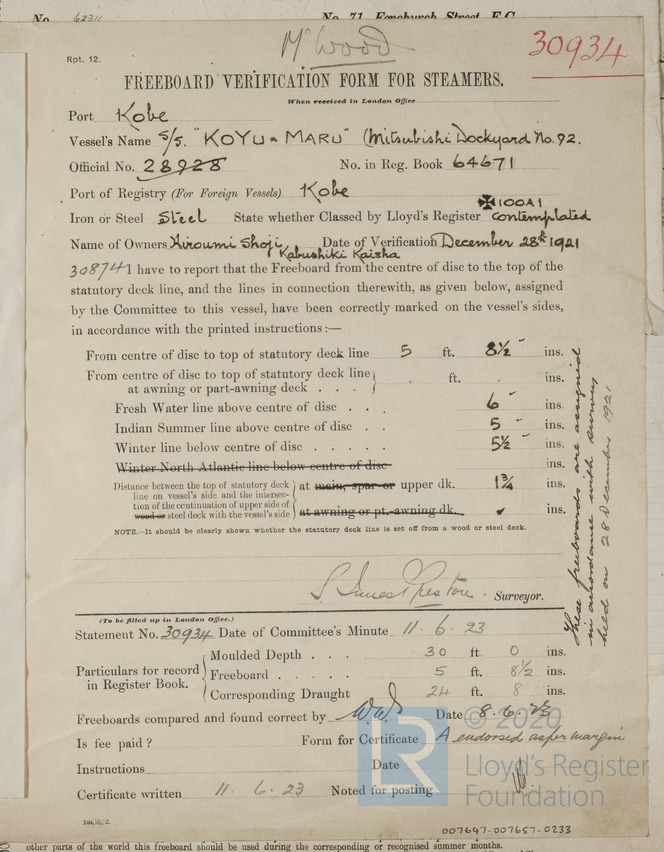 No. 62311 No. 71, Fenchurch Street, E.C.
Mr Wood
30934
Rpt. 12.
FREEBOARD VERIFICATION FORM FOR STEAMERS.
When received in London Office
Port Kobe
Vessel's Name S/S. "KOYU MARU" (Mitsubishi Dockyard No. 92.
Official No. 28928 No. in Reg. Book 64671
Port of Registry (For Foreign Vessels) Kobe
✠100A1
Iron or Steel Steel State whether Classed by Lloyd's Register contemplated
Name of Owners Hiroumi Shoji Kabushiki Kaisha Date of Verification December 28th 1921
30874 I have to report that the Freeboard from the centre of disc to the top of the
statutory deck line, and the lines in connection therewith, as given below, assigned
by the Committee to this vessel, have been correctly marked on the vessel's sides,
in accordance with the printed instructions:—
From centre of disc to top of statutory deck line 5 ft. 8½ ins.
From centre of disc to top of statutory deck line
at awning or part-awning deck . . . ft. ins.
Fresh Water line above centre of disc . . . 6 ins.
Indian Summer line above centre of disc . . 5 ins.
Winter line below centre of disc . . . . . 5½ ins.
Winter North Atlantic line below centre of disc ins.
Distance between the top of statutory deck
line on vessel's side and the intersec-
tion of the continuation of upper side of
wood or steel deck with the vessel's side
at main, spar or upper dk. 1¾ ins.
at awning or pt.-awning dk. ✓ ins.
NOTE.—It should be clearly shown whether the statutory deck line is set off from a wood or steel deck.
These freeboards are assigned
in accordance with survey
held on 28 December 1921
S. Innes Preston - Surveyor.
(To be filled up in London Office.)
Statement No. 30934 Date of Committee's Minute 11. 6. 23
Particulars for record
in Register Book.
Moulded Depth . . . 30 ft. 0 ins.
Freeboard . . . . . 5 ft. 8½ ins.
Corresponding Draught 24 ft. 8 ins.
Freeboards compared and found correct by W.W. Date 8. 6. 23
Is fee paid? Form for Certificate A endorsed as per margin
Instructions Date
Certificate written 11. 6. 23 Noted for posting
2m,10,'2.
LR
© 2020
Lloyd's Register
Foundation
007647-007657-0233
other parts of the world this freeboard should be used during the corresponding or recognised summer months.